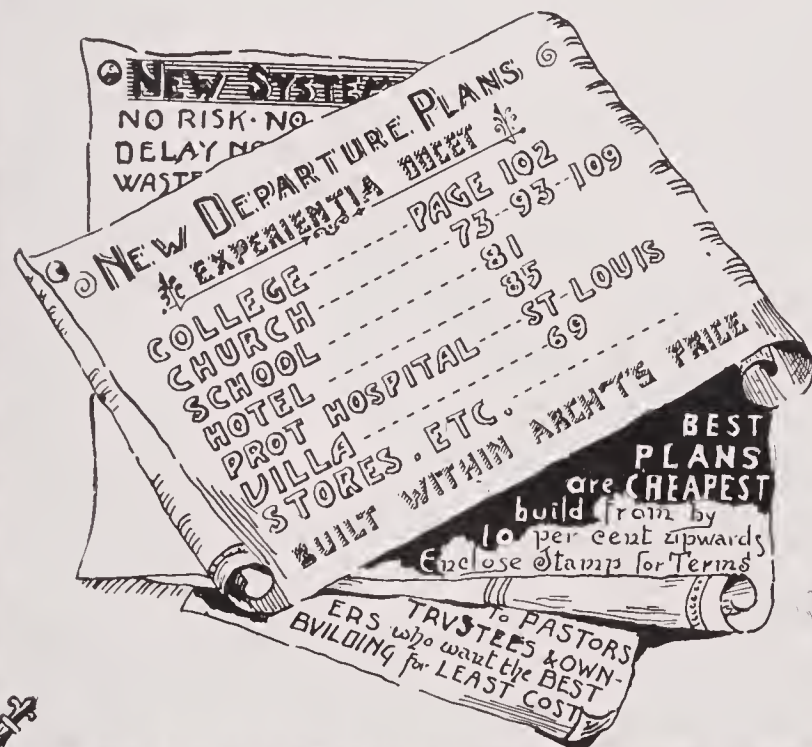 NEW SYSTEM
NO RISK · NO
DELAY NO
WASTE
NEW DEPARTURE PLANS
EXPERIENTIA DOCET
COLLEGE ------ PAGE 102
CHURCH ------ 73--93--109
SCHOOL ------ 81
HOTEL ------ 85
PROT HOSPITAL --- ST-LOUIS
VILLA ------ 69
STORES . ETC. ------
BUILT WITHIN ARCHT'S PRICE
BEST
PLANS
are CHEAPEST
build from by
10 per cent upwards
Enclose Stamp for Terms
To PASTORS
TRUSTEES & OWN-
ERS who want the BEST
BUILDING for LEAST COST